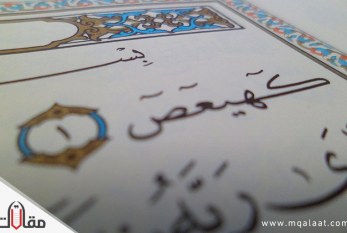 بِسْـ
كٓهيعٓصٓ ١
رَبِّكَ
مقالات
www.mqalaat.com